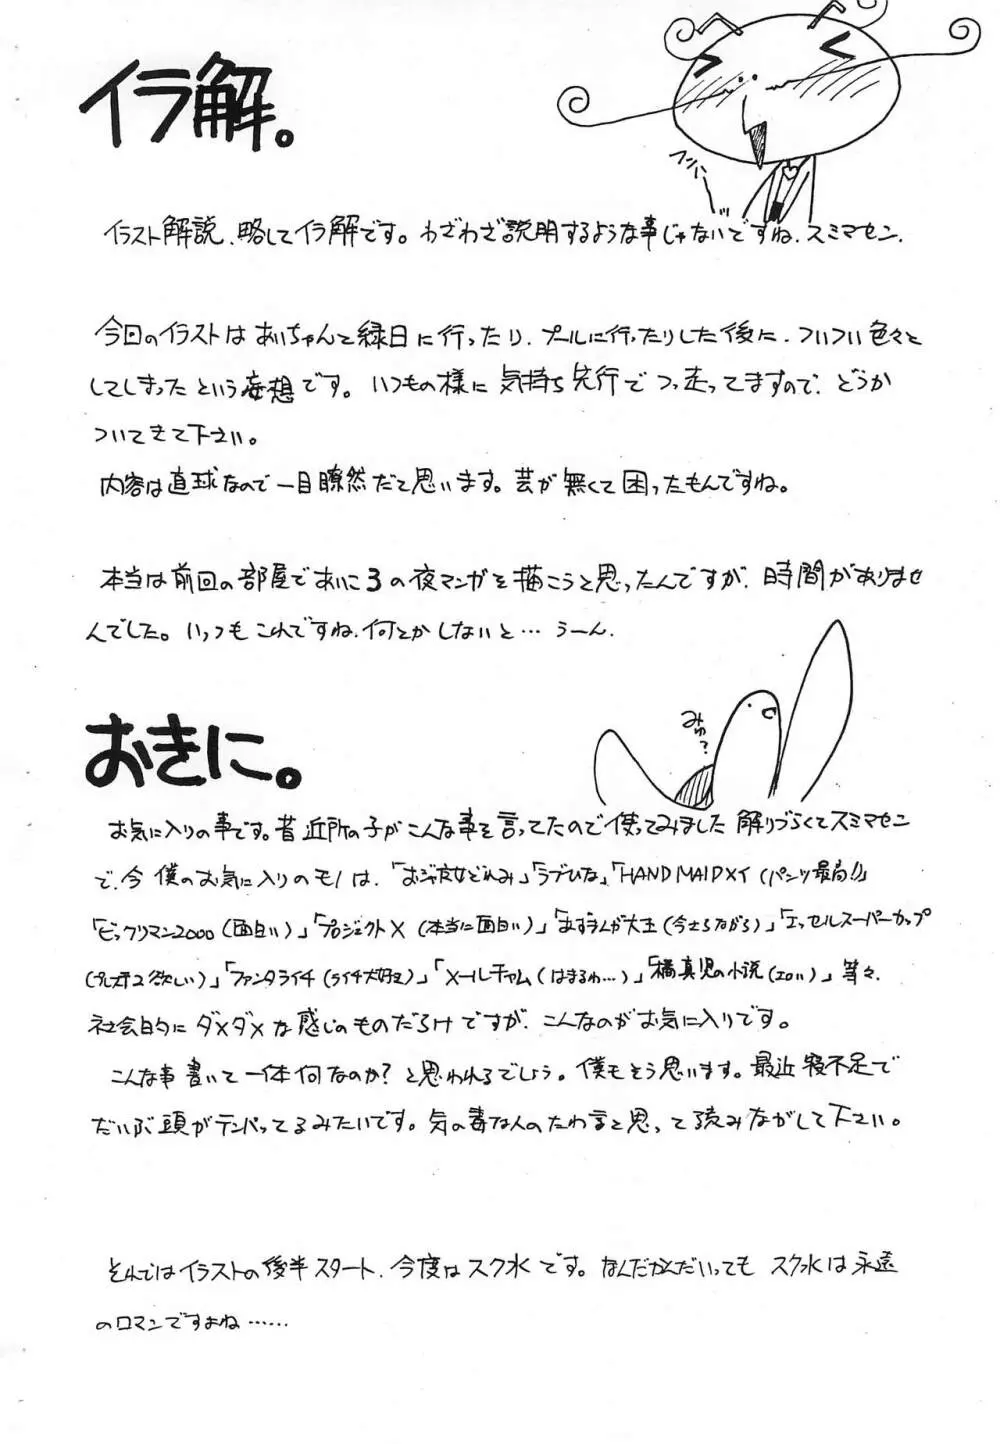 イラ解。
イラスト解説、略してイラ解です。わざわざ説明するような事じゃないですね、スミマセン。
今回のイラストはあいちゃんと縁日に行ったり、プールに行ったりした後に、ついつい色々と
してしまったという妄想です。いつもの様に気持ち先行でつっ走ってますので、どうか
ついてきて下さい。
内容は直球なので一目瞭然だと思います。芸が無くて困ったもんですね。
本当は前回の部屋であいこ3の夜マンガを描こうと思ったんですが、時間がありませ
んでした。いっつもこれですね、何とかしないと…うーん。
みゅ?
おきに。
お気に入りの事です。昔近所の子がこんな事を言ってたので使ってみました 解りづらくてスミマセン
で、今僕のお気に入りのモノは、「おジャ魔女どれみ」「ラブひな」「HAND MAID メイ (パンツ最高!)」
「ビックリマン2000 (面白い)」「プロジェクトX (本当に面白い)」「あずまんが大王 (今さらながら)」「エッセルスーパーカップ
(プレステ2欲しい)」「ファンタライチ (ライチ大好き)」「メールチャム (はまるわ…)」「橘真児の小説 (エロい)」等々、
社会的にダメダメな感じのものだらけですが、こんなのがお気に入りです。
こんな事書いて一体何なのか?と思われるでしょう。僕もそう思います。最近寝不足で
だいぶ頭がテンパってるみたいです。気の毒な人のたわ言と思って読みながして下さい。
それではイラストの後半スタート、今度はスク水です。なんだかんだいっても スク水は永遠
のロマンですよね……